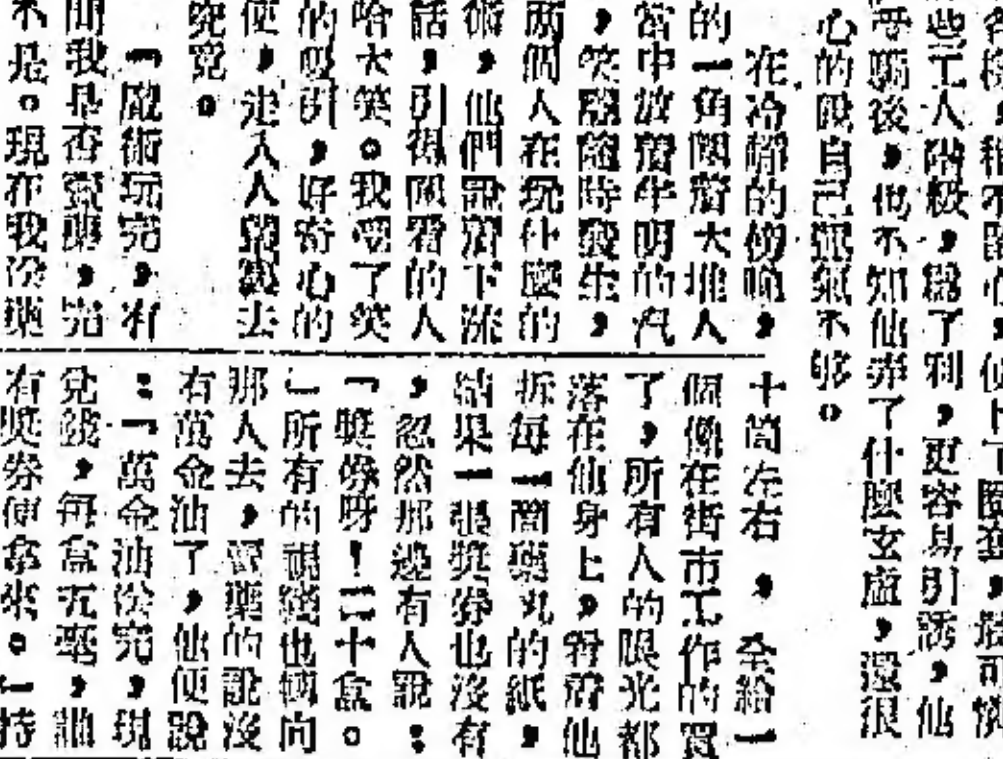 各種
種不關心,便自下圈套,最可憐
些工人階級,為了利,更容易引誘,他
受騙後,也不知他弄了什麼玄虛,還很
心的恨自己運氣不够。
在冷靜的傍晚,
的一角圍着大堆人
當中放着半明的汽
,笑聲隨時發生,
兩個人在玩什麼的
術,他們說着下流
話,引得圍看的人
哈大笑。我受了笑
的吸引,好奇心的
使,走入人叢裏去
究竟。
「魔術玩完,有
問我是否賣藥,完
不是。現在我
十筒左右,全給一
個像在街市工作的買
了,所有人的眼光都
落在他身上,看着他
拆每一筒藥丸的紙,
結果一張獎券也沒有
,忽然那邊有人說:
「獎券呀!二十盒。
」所有的視綫也轉向
那人去,賣藥的說沒
有萬金油了,他便說
:「萬金油 完,現
兌錢,每盒五毫,誰
有獎券便拿來。」持